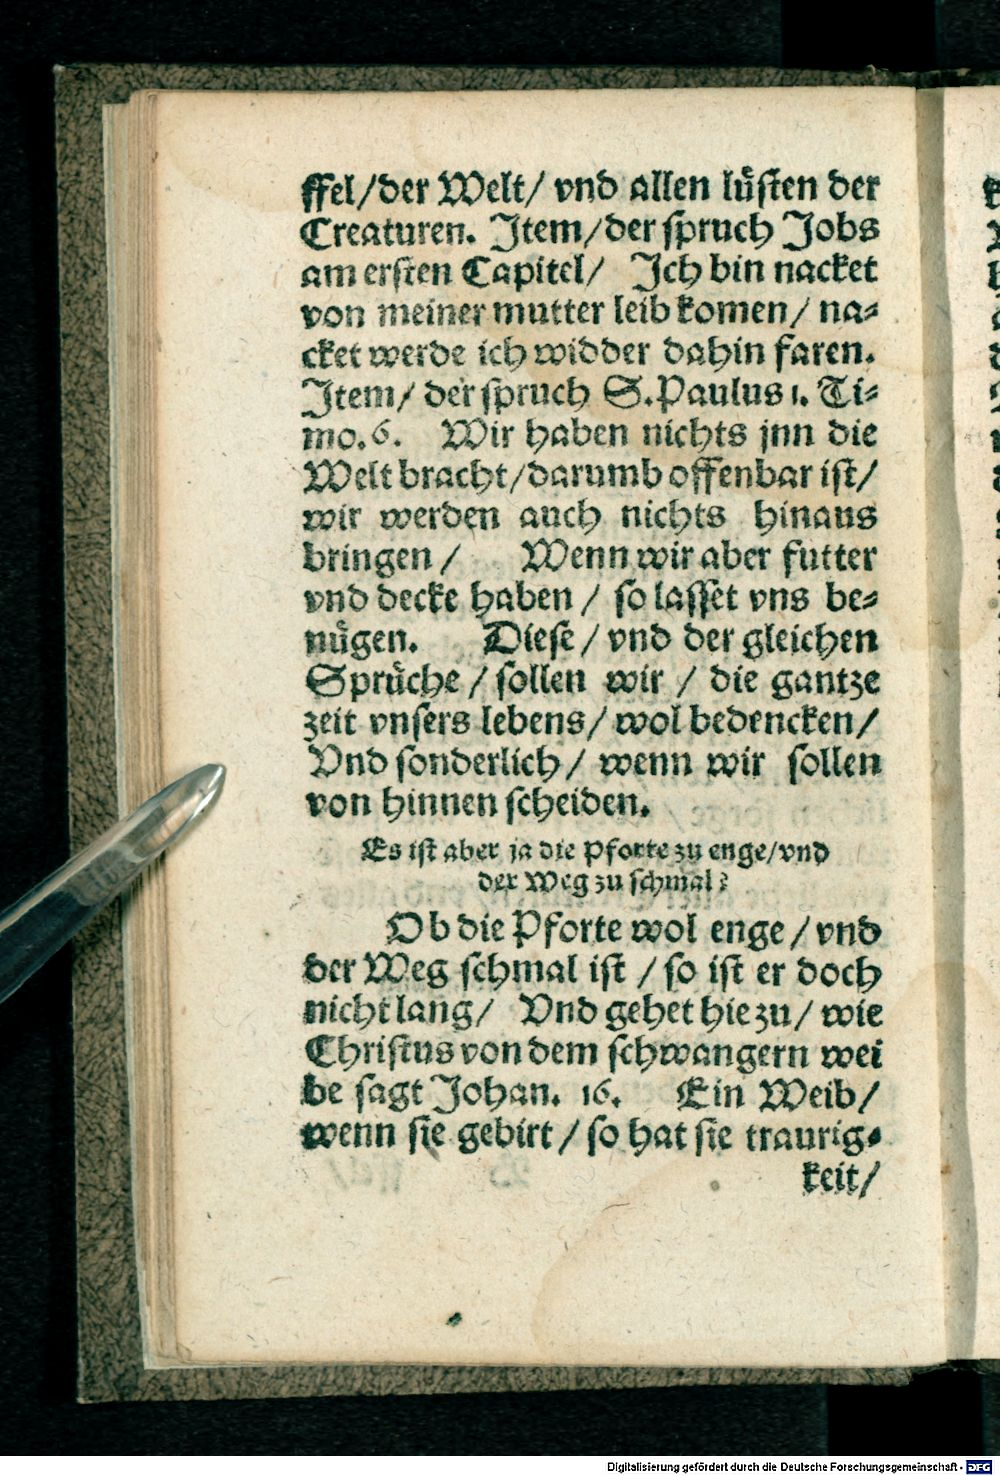 ffel/der Welt/ vnd allen lüsten der
Creaturen. Item/der spruch Jobs
am ersten Capitel/ Ich bin nacket
von meiner mutter leib komen/ na-
cket werde ich widder dahin faren.
Item/ der spruch S.Paulus 1. Ti-
mo.6. Wir haben nichts jnn die
Welt bracht/darumb offenbar ist/
wir werden auch nichts hinaus
bringen/ Wenn wir aber futter
vnd decke haben/ so lasset vns be-
nügen. Diese/ vnd der gleichen
Sprüche/ sollen wir/ die gantze
zeit vnsers lebens/ wol bedencken/
Vnd sonderlich/ wenn wir sollen
von hinnen scheiden.
Es ist aber ja die Pforte zu enge/vnd
der Weg zu schmal?
Ob die Pforte wol enge/ vnd
der Weg schmal ist/ so ist er doch
nicht lang/ Vnd gehet hie zu/ wie
Christus von dem schwangern wei
be sagt Johan. 16. Ein Weib/
wenn sie gebirt/ so hat sie traurig-
keit/
Digitalisierung gefördert durch die Deutsche Forschungsgemeinschaft - DFG